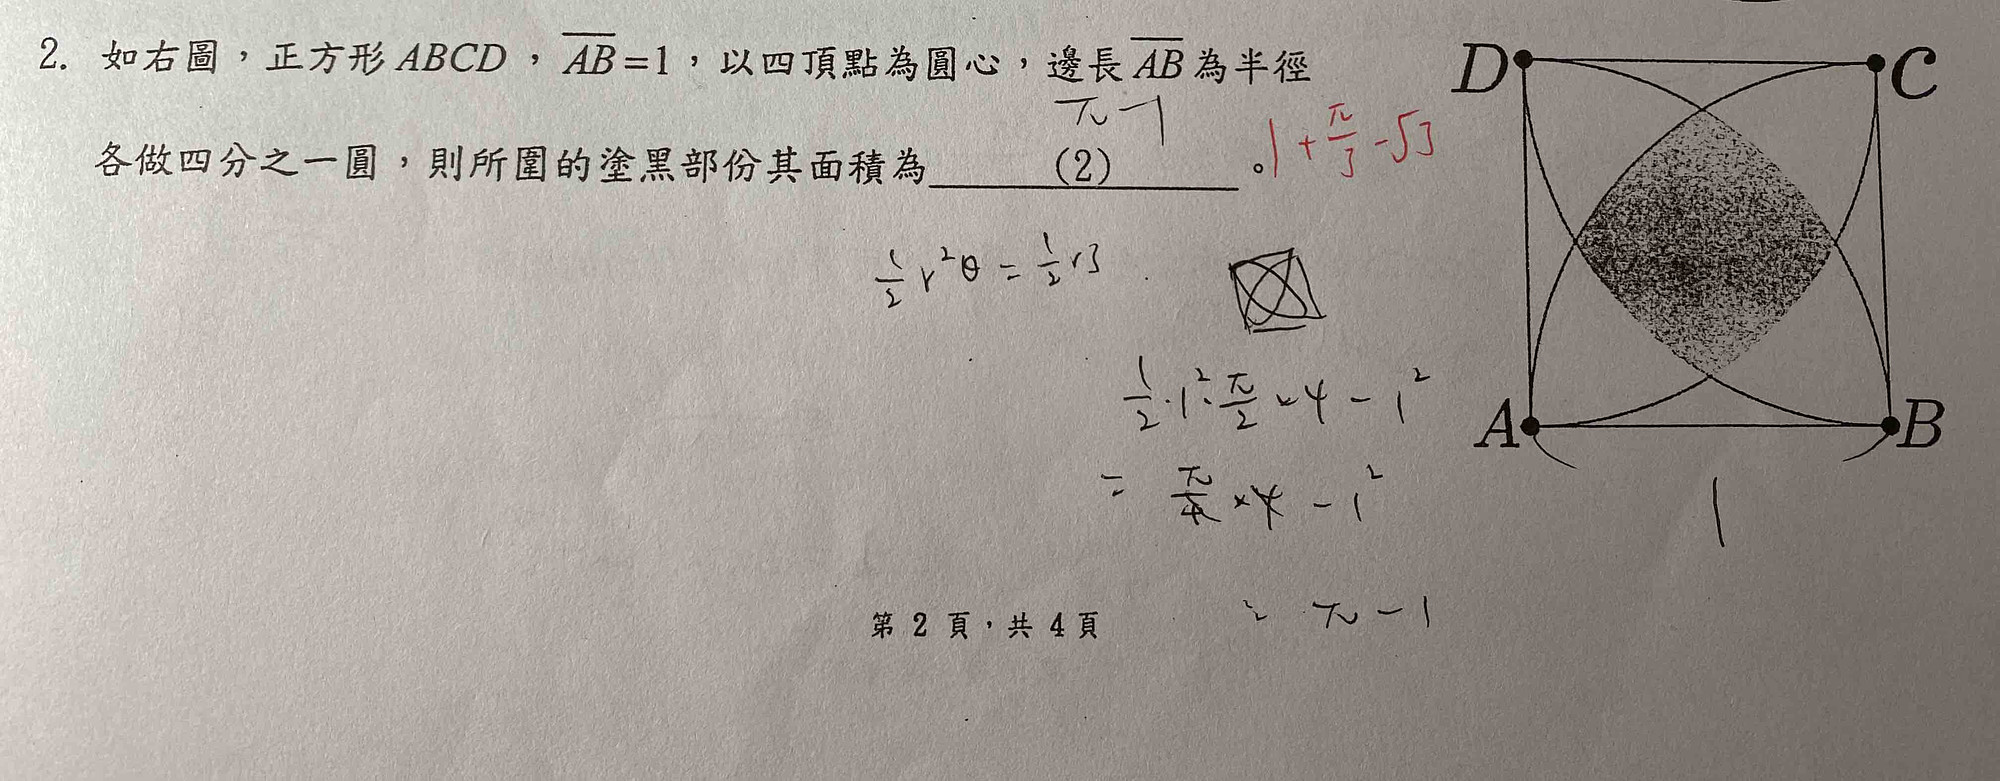 2. 如右圖，正方形 ABCD，AB=1，以四頂點為圓心，邊長 AB 為半徑
π-1
各做四分之一圓，則所圍的塗黑部份其面積為 (2) 。 1+π/3-√3
D C
A B
1
1/2 r²θ = 1/2 r3
1/2·1²·π/2×4-1²
= π/4×4-1²
= π-1
第 2 頁，共 4 頁